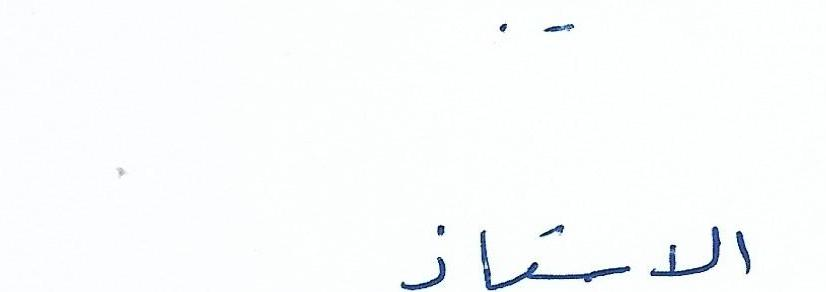 الاستاذ